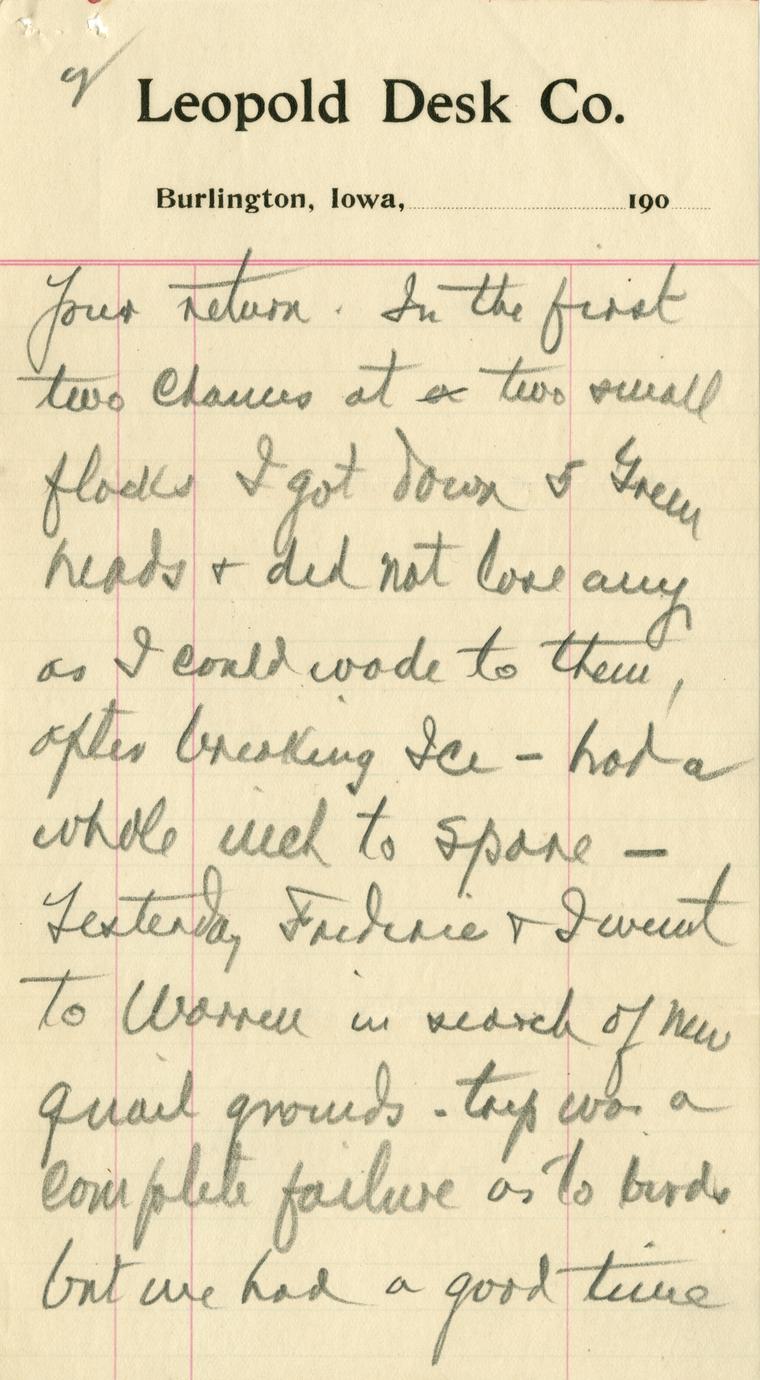 Leopold Desk Co.
Burlington, Iowa, 190
your return. In the first
two chances at a two small
flocks I got down 5 Green
heads + did not lose any
as I could wade to them,
after breaking Ice - had a
whole inch to spare -
Yesterday Frederic + I went
to Warren in search of new
quail grounds - trip was a
complete failure as to birds
but we had a good time